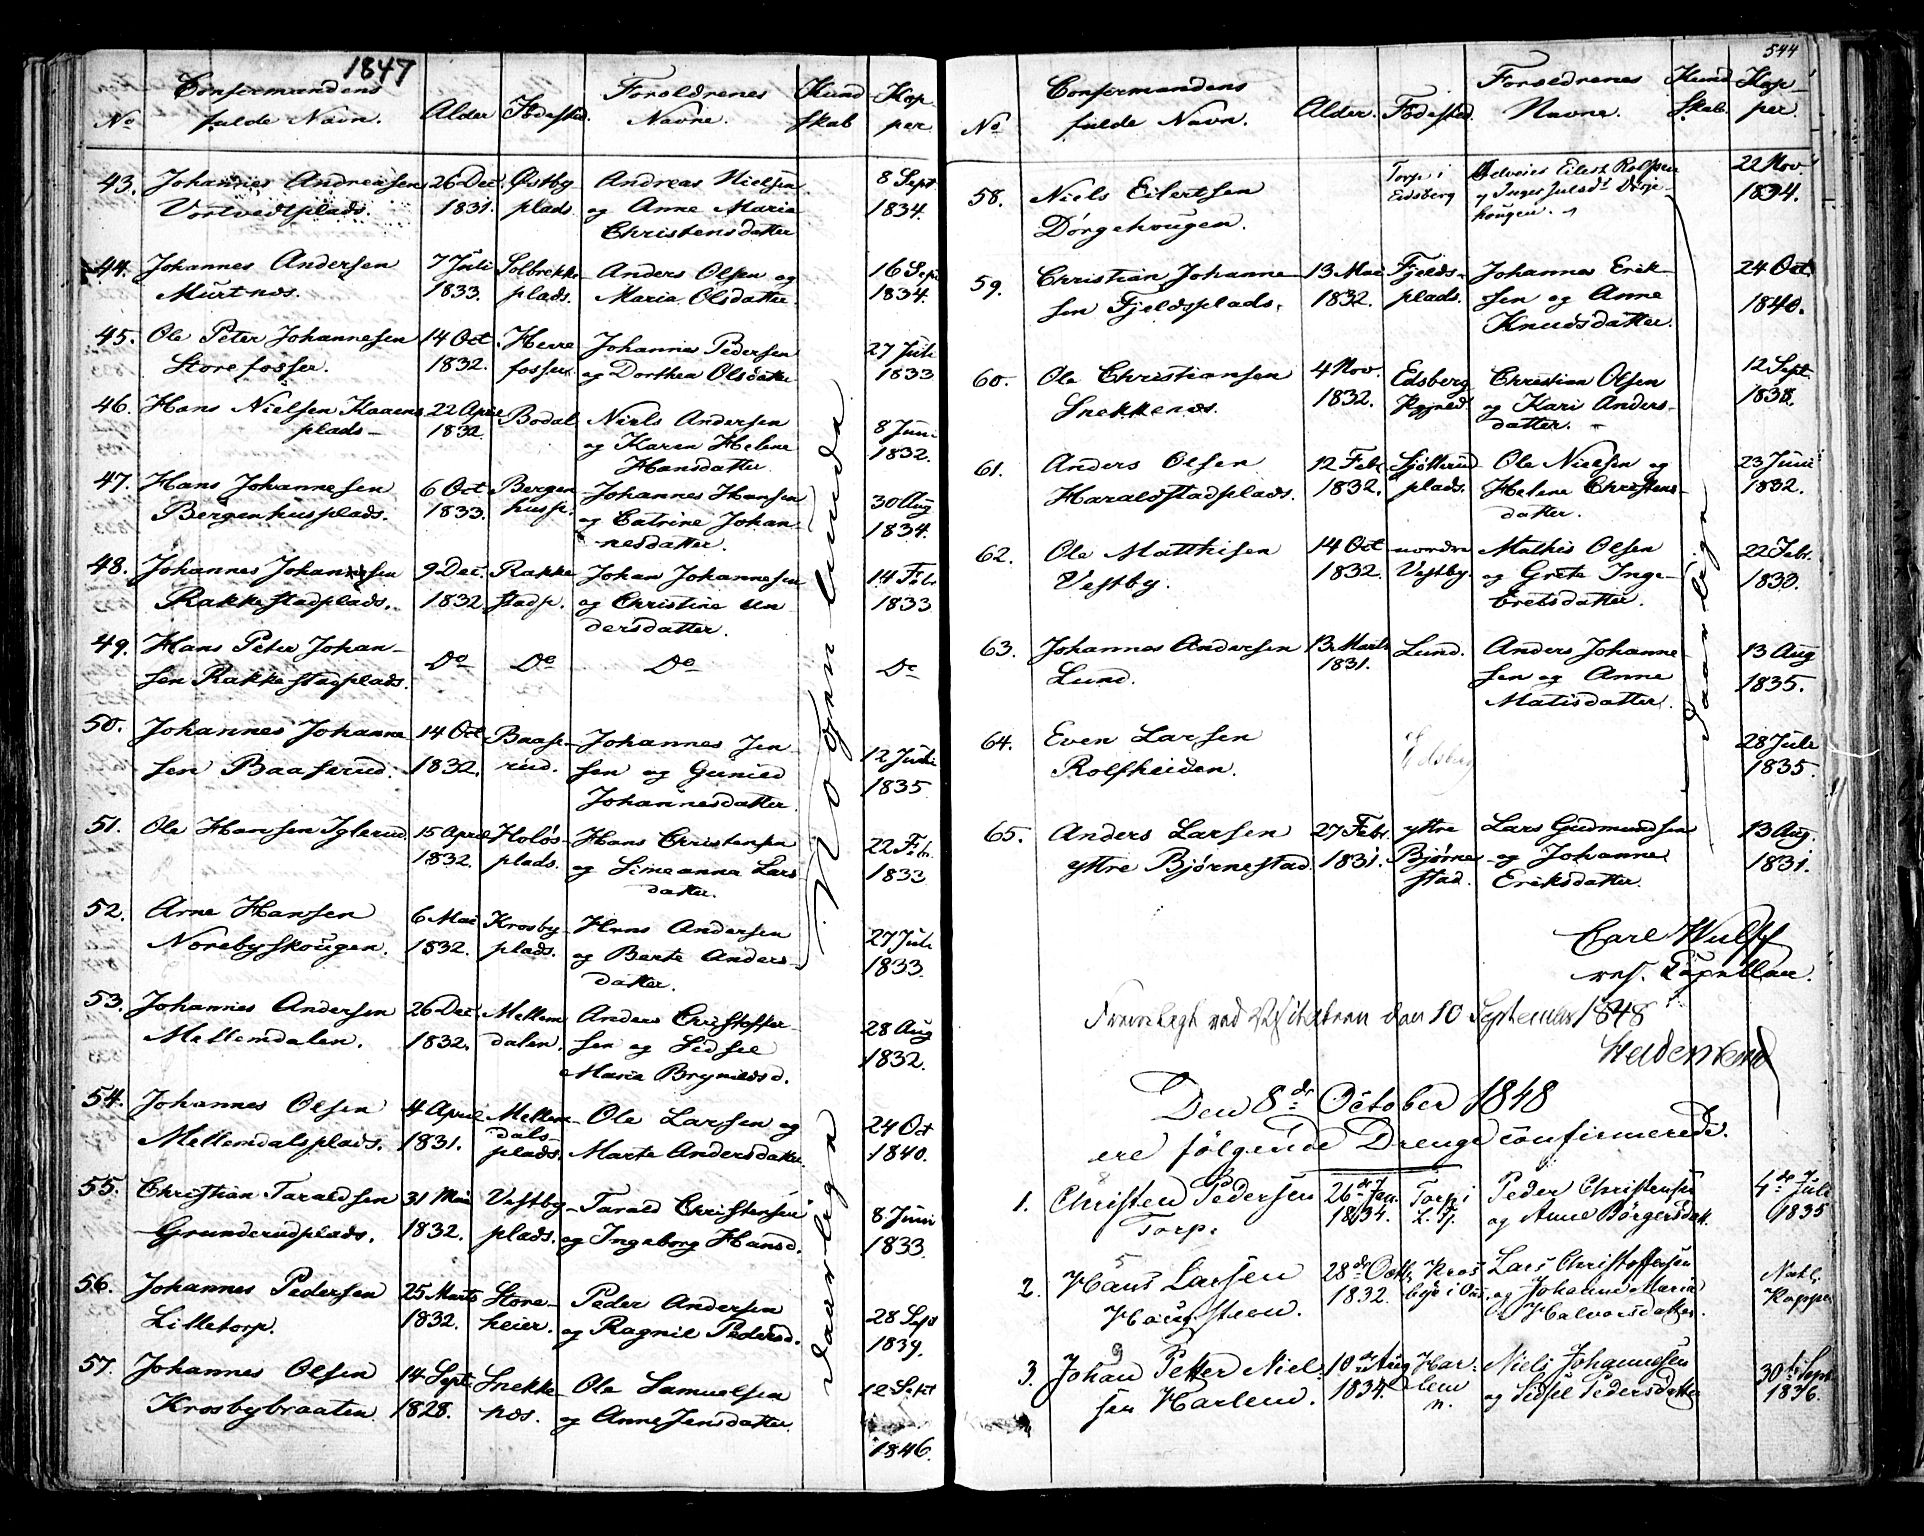 1847
Confirmandens Forældrenes Kund Kop
No fulde Navn. Alder Fødested. Navne. skab per.
43. Johannes Andreasen 26 Dec. Østby Andreas Nielsen 8 Sept
Vortvedtplads. 1831. plads. og Anne Maria 1834.
Christensdatter
44. Johannes Andersen 7 Juli Solbrekke Anders Olsen og 16 Sept
Murtnæs. 1833. plads. Maria Olsdatter. 1834.
45. Ole Peter Johannesen 14 Oct. Herre Johannes Pedersen 27 Juli
Storefosser. 1832. fosser. og Dorthea Olsdatter 1833
46. Hans Nielsen Kaaens 22 April Bodal Niels Andersen 8 Juni
plads 1832. og Karen Helene 1832.
Hansdatter.
47. Hans Johannesen 6 Oct Bergen Johannes Hansen 30 Aug
Bergenhusplads. 1833. husp. og Catrine Johan- 1834.
nesdatter.
48. Johannes Johannesen 9 Dec. Rakke Johan Johannesen 14 Febr.
Rakkestadplads. 1832 stadp. og Christine An 1833
dersdatter.
49. Hans Peter Johan- Do Do Do Do
sen Rakkestadplads.
50. Johannes Johanne 14 Oct Baase- Johannes Jen 12 Juli
sen Baaserud. 1832. rud. sen og Gunild 1835
Johannesdatter.
51. Ole Hansen Iglerud 15 April Holøs- Hans Christensen 22 Febr.
1832. plads. og Simeanna Lars 1833
datter.
52. Arne Hansen 6 Mai Krosby- Hans Andersen 27 Juli
Norebyskougen. 1832. plads. og Berte Anders- 1833.
datter.
53. Johannes Andersen 26 Dec. Mellem Anders Christoffer- 28 Aug
Mellemdalen. 1832. dalen. sen og Sidsel 1832.
Maria Brynildsd.
54. Johannes Olsen 4 April Mellem- Ole Larsen og 24 Oct
Mellemdalsplads. 1831. dals- Marte Andersdatter. 1840.
plads.
55. Christian Taraldsen 31 Mai Vestby- Tarald Christensen 8 Juni
Grunderudplads. 1832. plads. og Ingeborg Hansd. 1833.
56. Johannes Pedersen 25 Marts Store- Peder Andersen 28 Sept
Lilletorp. 1832. heier. og Ragnil Pedersd. 1839.
57. Johannes Olsen 14 Sept. Snekke- Ole Samuelsen 12 Sept
Krosbybraaten. 1828. næs. og Anne Jensdatter. 1846.
Nogenlunde
vaarlige
544
Confirmandens Forældrenes Kund Kop-
No fulde Navn. Alder. Fødested. Navne. skab. per.
58. Niels Eilertsen Torp i Eilert Rolfsen 22 Nov
Dørgehougen. Eidsberg og Inger Julsd. Dørge- 1834.
hougen.
59. Christian Johanne 13 Mai Fjelds- Johannes Erik- 24 Oct.
sen Fjeldsplads. 1832. plads. sen og Anne 1840.
Knudsdatter.
60. Ole Christiansen 4 Nov. Edsberg Christian Olsen 12 Sept.
Snekkenæs. 1832. og Kari Anders- 1838.
datter.
61. Anders Olsen 12 Febr Sjøtterud Ole Nielsen og 23 Juni
Haraldstadplads. 1832. plads. Helene Christens- 1832.
datter.
62. Ole Matthisen 14 Oct nordre Mathis Olsen 22 Febr.
Vestby. 1832. Vestby. og Grete Inge- 1833.
bretsdatter.
63. Johannes Andersen 13 Marts Lund. Anders Johanne- 13 Aug
Lund. 1831. sen og Anne 1835.
Matisdatter.
64. Even Larsen Edsberg 28 Juli
Rolfsheiden. 1835.
65. Anders Larsen 27 Febr. yttre Lars Gudmundsen 13 Aug.
yttre Bjørnestad. 1831. Bjørne og Johanne 1831.
stad. Eriksdatter.
vaarlige
Carl Wulff
res. Capellan.
Fremlagt ved Visitatsen den 10 September 1848
Heidenreich
Den 8de October 1848
ere følgende Drenge confirmerede.
1. Christen Pedersen 26de Jan. Torp i Peder Christensen 4de Juli
Torp. 1834. og Anne Børgersdatt. 1835
2. Hans Larsen 28de Octbr. Kros Lars Christoffersen
Hougsteen. 1832. bye i og Johanne Maria
Halvorsdatter.
3. Johan Petter Niel- 10de Aug Har- Niels Johannesen 30te Sept
sen Harlem. 1834. lem og Sidsel Pedersdatter 1836.
n.